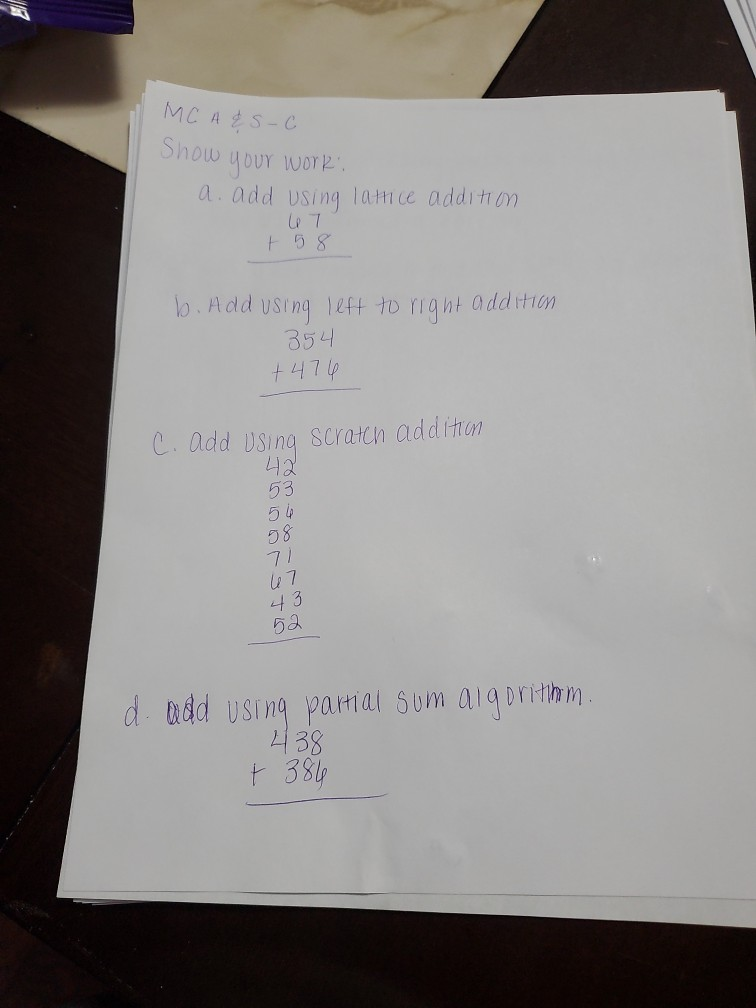 MC A & S - C
Show your work:
a. add using lattice addition
67
+ 58
b. Add using left to right addition
354
+ 476
C. add using scratch addition
42
53
56
58
71
67
43
52
d. add using partial sum algorithm.
438
+ 386